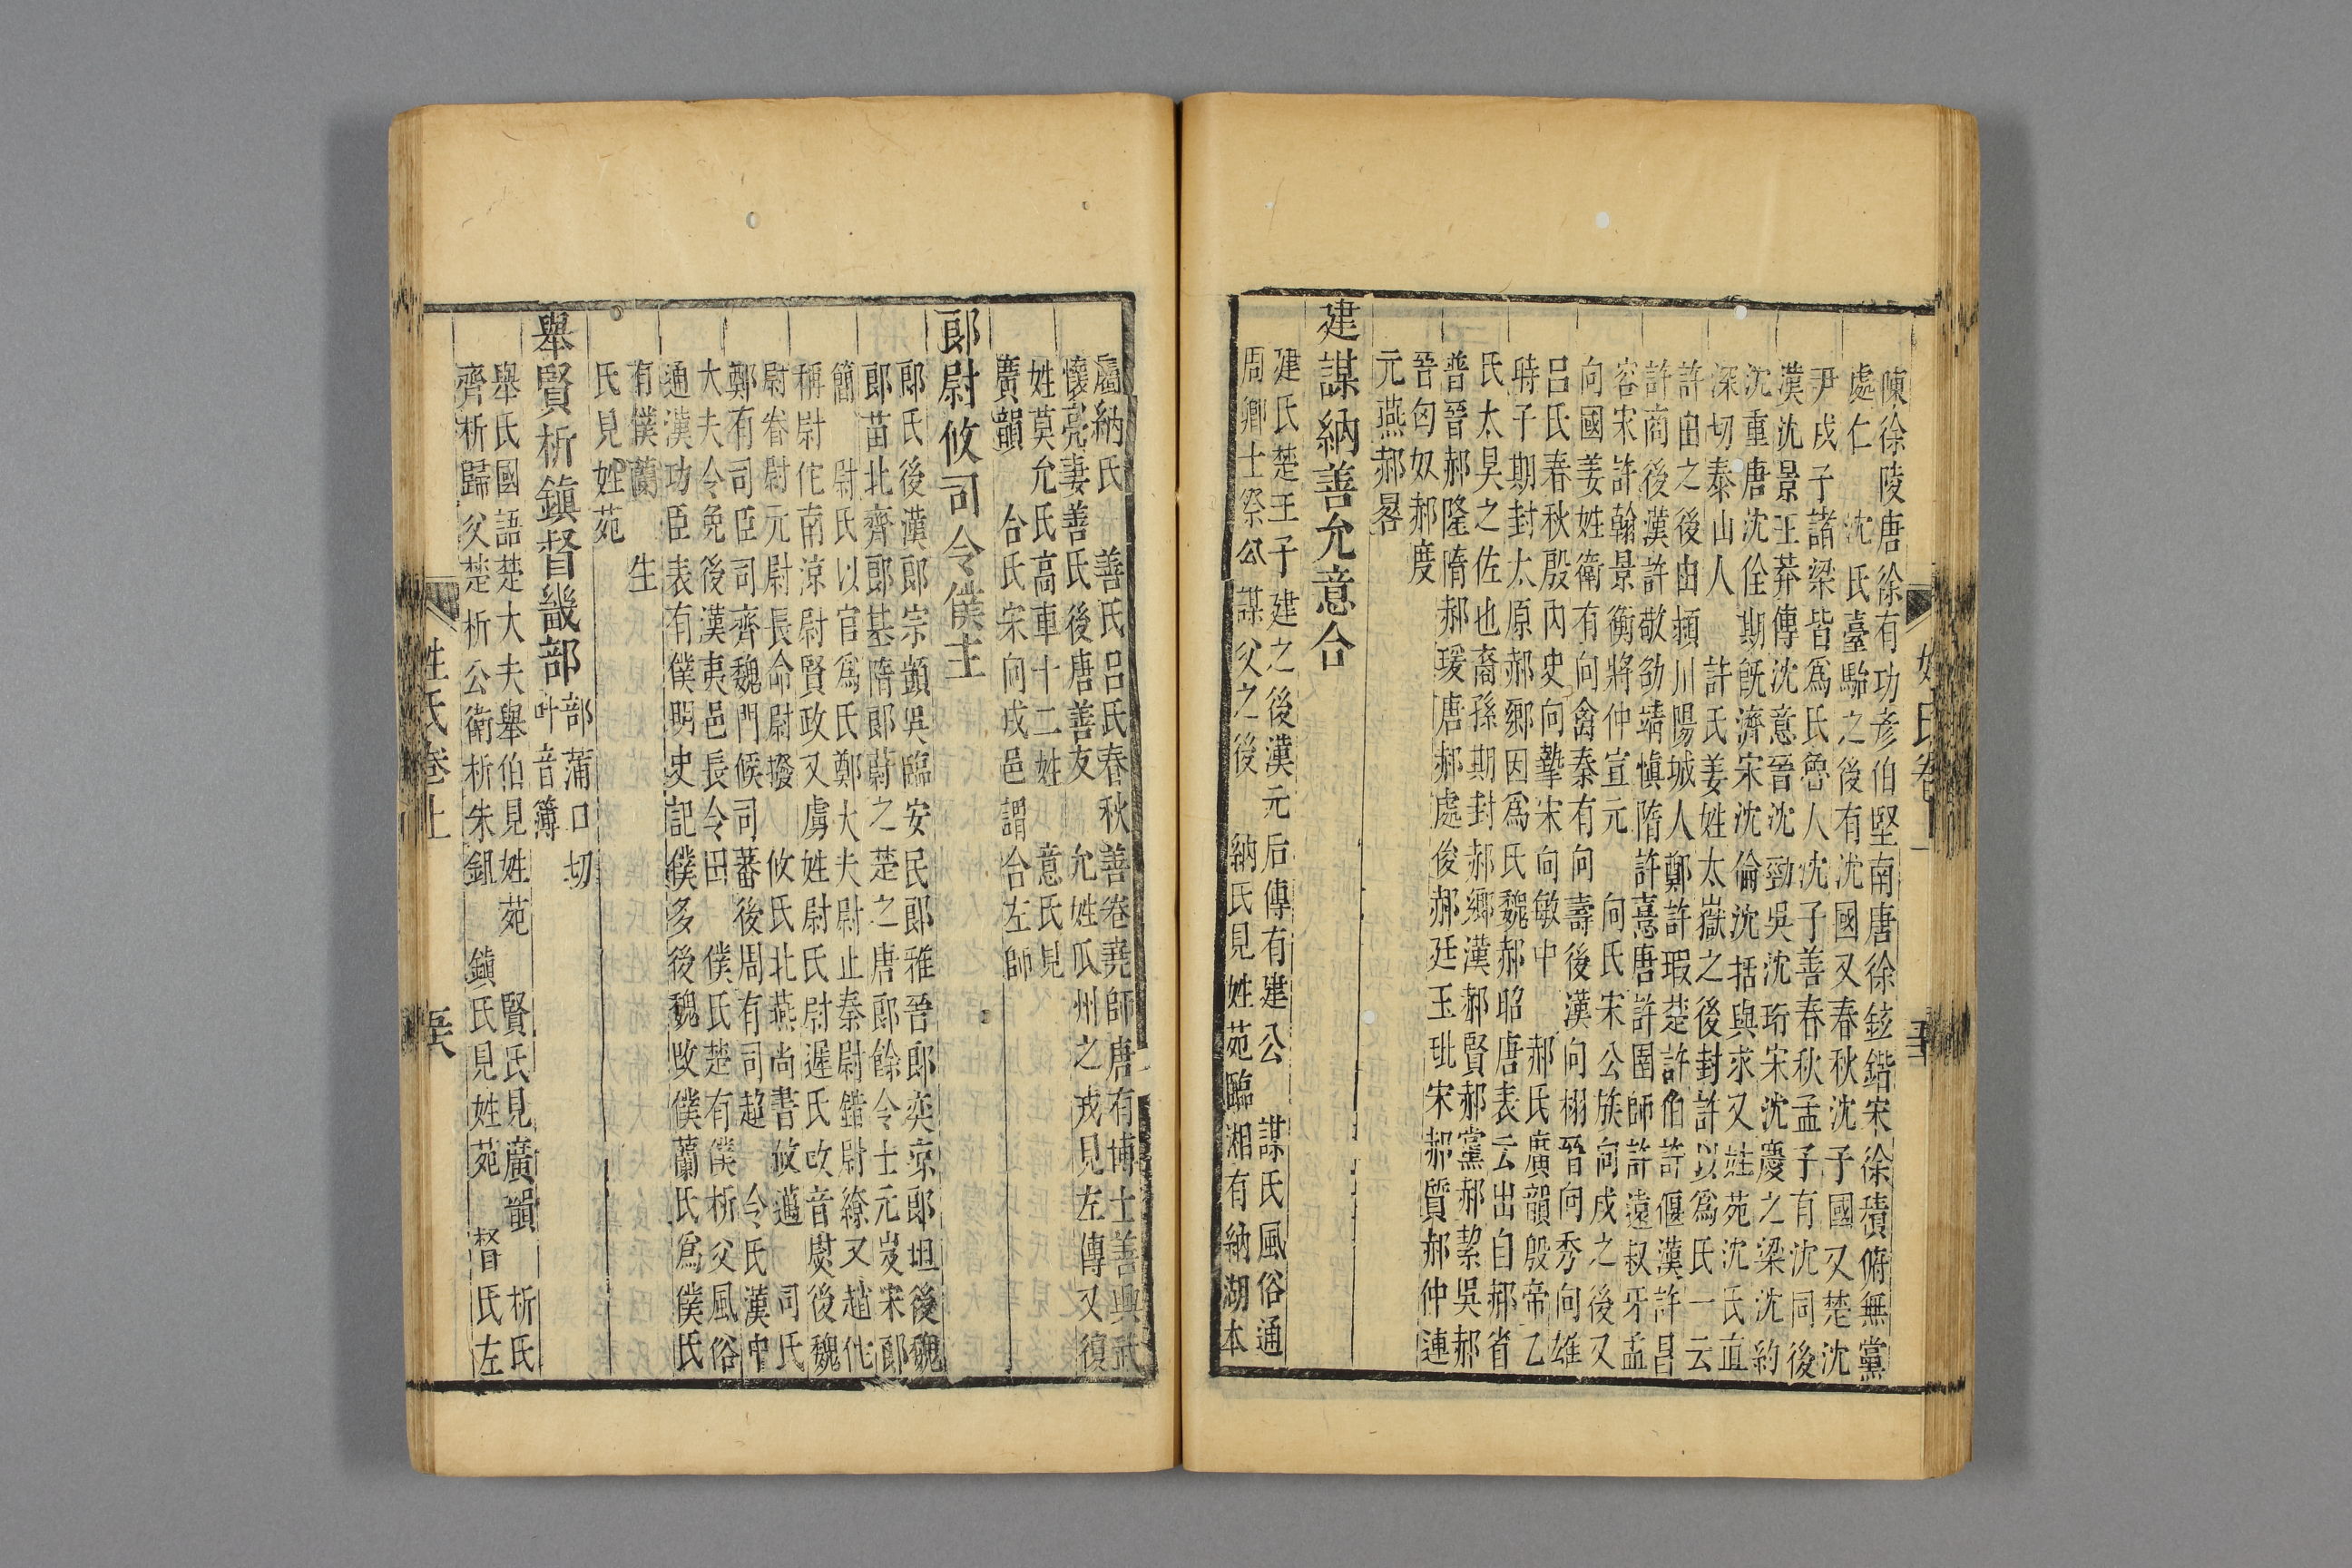 陳徐陵唐徐有功彥伯堅南唐徐鉉鍇宋徐積俯無黨
處仁　沈氏臺駘之後有沈國又春秋沈子國又楚沈
尹戌子諸梁皆爲氏魯人沈子善春秋孟子有沈同後
漢沈景王莽傳沈意晉沈勁吳沈珩宋沈慶之梁沈約
沈重唐沈佺期旣濟宋沈倫沈括與求又姓苑沈氏直
深切泰山人　許氏姜姓太嶽之後封許以爲氏一云
許由之後由潁川陽城人鄭許瑕楚許伯許偃漢許昌
許商後漢許敬劭靖愼隋許熹唐許圉師許遠叔牙孟
容宋許翰景衡將仲宣元　向氏宋公族向戍之後又
向國姜姓衛有向禽秦有向壽後漢向栩晉向秀向雄
呂氏春秋殷內史向摯宋向敏中　郝氏廣韻殷帝乙
時子期封太原郝鄉因爲氏魏郝昭唐表云出自郝省
氏太昊之佐也裔孫期封郝鄉漢郝賢郝黨郝絜吳郝
普晉郝隆隋郝瑗唐郝處俊郝廷玉玼宋郝質郝仲連
吾匈奴郝度
元燕郝晷
建謀納善允意合
建氏楚王子建之後漢元后傳有建公　謀氏風俗通
周卿士祭公謀父之後　納氏見姓苑臨湘有納湖本
屬納氏　善氏呂氏春秋善卷堯師唐有博士善興武
懷亮妻善氏後唐善友　允姓瓜州之戎見左傳又復
姓莫允氏高車十二姓　意氏見
廣韻　合氏宋向戍邑謂合左師
郎尉攸司令僕主
郎氏後漢郎宗顗吳臨安民郎雅吾郎奕京郎坦後魏
郎苗北齊郎基隋郎蔚之楚之唐郎餘令士元岌宋郎
簡　尉氏以官爲氏鄭大夫尉止秦尉錯尉繚又趙佗
稱尉佗南涼尉賢政又虜姓尉氏尉遲氏改音熨後魏
尉眷尉元尉長命尉撥　攸氏北燕尚書攸邁　司氏
鄭有司臣司齊魏門候司蕃後周有司超　令氏漢中
大夫令免後漢夷邑長令田　僕氏楚有僕析父風俗
通漢功臣表有僕明史記僕多後魏改僕蘭氏爲僕氏
有僕蘭　生
氏見姓苑
舉賢析鎮督畿部部蒲口切
叶音簿
舉氏國語楚大夫舉伯見姓苑　賢氏見廣韻　析氏
齊析歸父楚析公衛析朱鉏　鎮氏見姓苑　督氏左
姓氏卷上